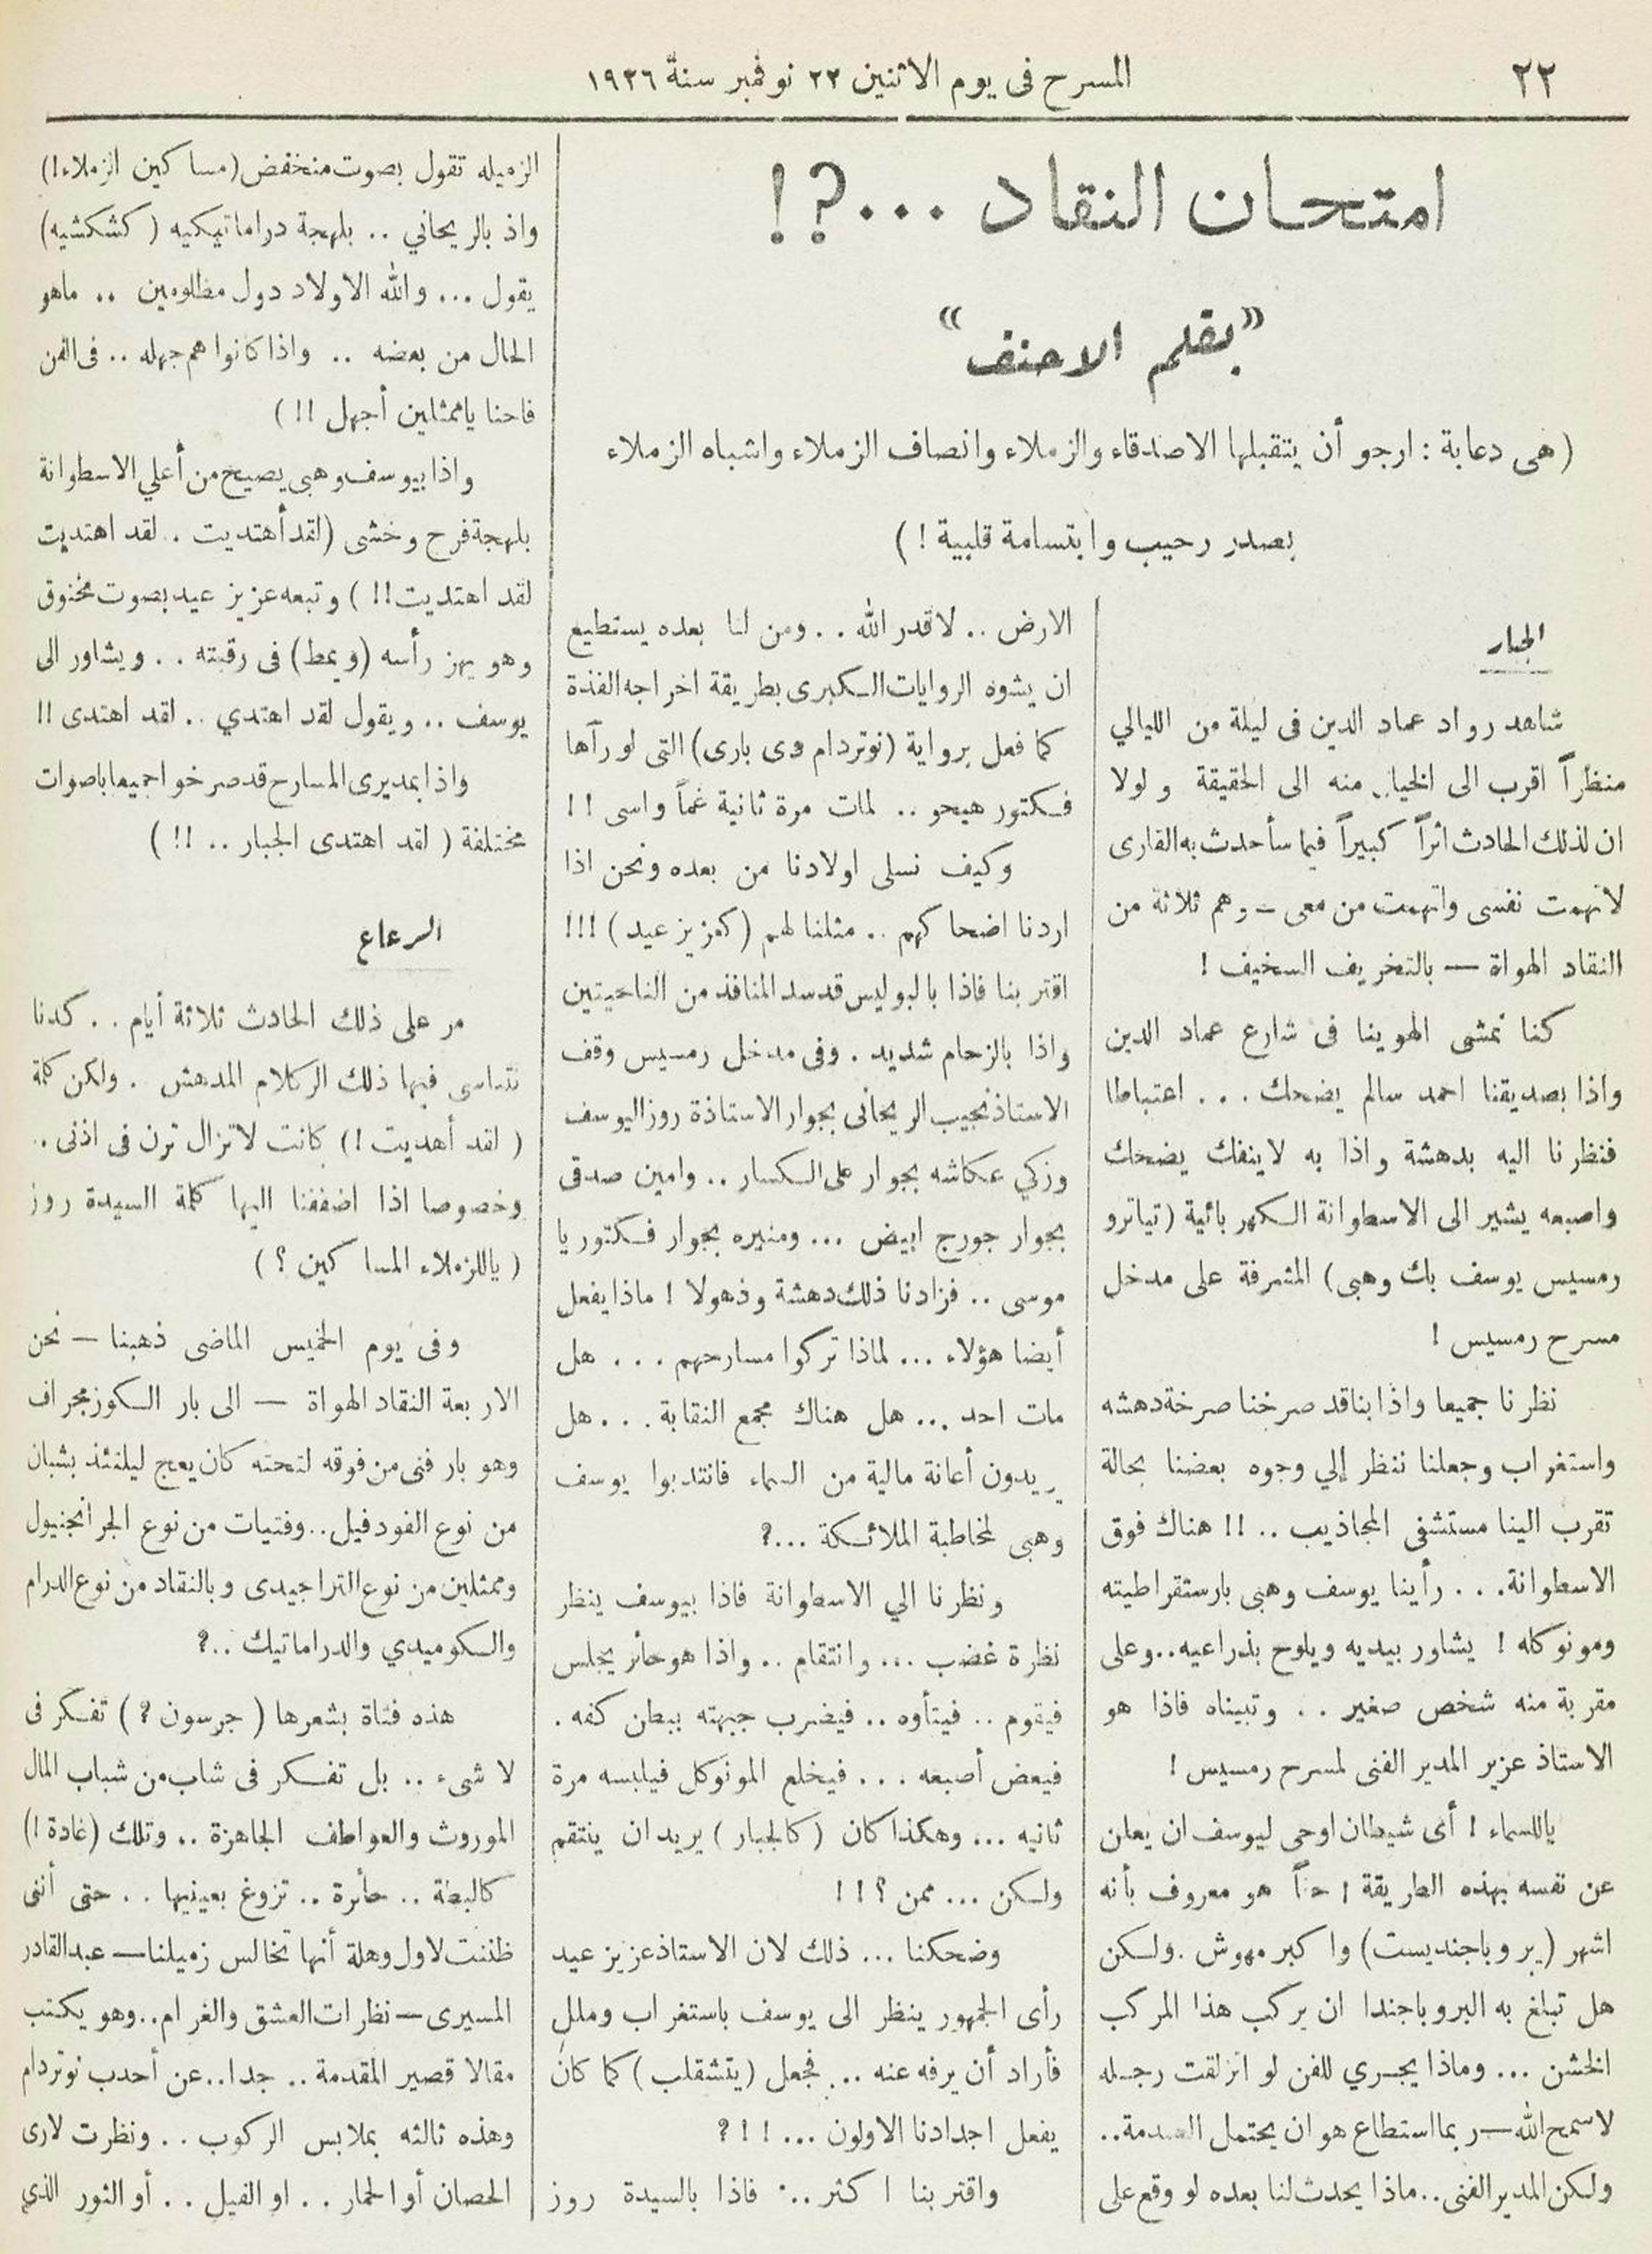 ٢٢
المسرح فى يوم الاثنين ٢٢ نوفمبر سنة ١٩٢٦
امتحان النقاد ...؟!
«بقلم الاحنف»
(هى دعابة : ارجو أن يتقبلها الاصدقاء والزملاء وانصاف الزملاء واشباه الزملاء
بصدر رحيب وابتسامة قلبية ! )
الجبار
شاهد رواد عماد الدين فى ليلة من الليالي
منظراً اقرب الى الخيال منه الى الحقيقة ولولا
ان لذلك الحادث اثراً كبيراً فيما سأحدث به القارى
لاتهمت نفسى واتهمت من معى ــ وهم ثلاثة من
النقاد الهواة — بالتخريف السخيف !
كنا نمشى الهوينا فى شارع عماد الدين
واذا بصديقنا احمد سالم يضحك . . . اعتباطا
فنظرنا اليه بدهشة واذا به لاينفك يضحك
واصبعه يشير الى الاسطوانة الكهربائية (تياترو
رمسيس يوسف بك وهبى) المشرفة على مدخل
مسرح رمسيس !
نظرنا جميعا واذا بنا قد صرخنا صرخة دهشه
واستغراب وجعلنا ننظر إلي وجوه بعضنا بحالة
تقرب الينا مستشفى المجاذيب .. !! هناك فوق
الاسطوانة. . . رأينا يوسف وهبى بارستقراطيته
ومونوكله ! يشاور بيديه ويلوح بذراعيه..وعلى
مقربة منه شخص صغير . . وتبيناه فاذا هو
الاستاذ عزيز المدير الفنى لمسرح رمسيس !
ياللسماء ! أى شيطان اوحى ليوسف ان يعلن
عن نفسه بهذه الطريقة ! حقاً هو معروف بأنه
اشهر (بروباجنديست) واكبر مهوش .ولكن
هل تبلغ به البروباجندا ان يركب هذا المركب
الخشن ... وماذا يجرى للفن لو انزلقت رجله
لاسمح الله—ربما استطاع هو ان يحتمل الصدمة..
ولكن المدير الفنى..ماذا يحدث لنا بعده لو وقع على
الارض .. لا قدر الله . . ومن لنا بعده يستطيع
ان يشوه الروايات الكبرى بطريقة اخراجه الفذة
كما فعل برواية (نوتردام دى بارى) التى لو رآها
فكتور هيجو .. لمات مرة ثانية غماً واسى ! !
وكيف نسلى اولادنا من بعده ونحن اذا
اردنا اضحاكهم .. مثلنا لهم (كعزيز عيد ) !!!
اقتربنا فاذا بالبوليس قد سد المنافذ من الناحيتين
واذا بالزحام شديد . وفى مدخل رمسيس وقف
الاستاذ نجيب الريحانى بجوار الاستاذة روز اليوسف
وزكي عكاشه بجوار على الكسار .. وامين صدقى
بجوار جورج ابيض ... ومنيره بجوار فكتوريا
موسى .. فزادنا ذلك دهشة وذهولا ! ماذا يفعل
أيضا هؤلاء ... لماذا تركوا مسارحهم . . . هل
مات احد ... هل هناك مجمع النقابة . . . هل
يريدون أعانة مالية من السماء فانتدبوا يوسف
وهبى لمخاطبة الملائكة ...؟
ونظرنا الي الاسطوانة فاذا بيوسف ينظر
نظرة غضب ... وانتقام .. واذا هو حائر يجلس
فيقوم .. فيتأوه .. فيضرب جبهته ببطن كفه .
فيعض أصبعه . . . فيخلع المونوكل فيلبسه مرة
ثانيه ... وهكذا كان (كالجبار ) يريد ان ينتقم
ولكن ... ممن ؟ ! !
وضحكنا ... ذلك لان الاستاذ عزيز عيد
رأى الجمهور ينظر الى يوسف باستغراب وملل
فأراد أن يرفه عنه ... فجعل (يتشقلب ) كما كان
يفعل اجدادنا الاولون ... ! ! ؟
واقتربنا اكثر .. فاذا بالسيدة روز
الزميله تقول بصوت منخفض (مساكين الزملاء!)
واذ بالريحاني .. بلهجة دراماتيكيه (كشكشيه)
يقول ... والله الاولاد دول مظلومين .. ماهو
الحال من بعضه .. واذا كانوا هم جهله .. فى الفن
فاحنا ياممثلين أجهل !! )
واذا بيوسف وهبى يصيح من أعلي الاسطوانة
بلهجة فرح وخشى (لقد أهتديت .. لقد اهتديت
لقد اهتديت !! ) وتبعه عزيز عيد بصوت مخنوق
وهو يهز رأسه (ويمط) فى رقبته . . ويشاور الى
يوسف .. ويقول لقد اهتدي .. لقد اهتدى !!
واذا بمديرى المسارح قد صرخوا جميعا باصوات
مختلفة ( لقد اهتدى الجبار .. !! )
الرعاع
مر على ذلك الحادث ثلاثة أيام . . كدنا
نتناسى فيها ذلك الركلام المدهش . ولكن كلمة
( لقد أهديت ! ) كانت لا تزال ترن فى اذنى .
وخصوصا اذا اضففنا اليها كلمة السيدة روز
( ياللزملاء المساكين ؟ )
وفى يوم الخميس الماضى ذهبنا — نحن
الاربعة النقاد الهواة — الى بار الكوزمجراف
وهو بار فنى من فوقه لتحته كان يعج ليلتئذ بشبان
من نوع الفودفيل..وفتيات من نوع الجرانجنيول
وممثلين من نوع التراجيدى وبالنقاد من نوع الدرام
والكوميدي والدراماتيك ..؟
هذه فتاة بشعرها ( جرسون ؟ ) تفكر فى
لا شىء .. بل تفكر فى شاب من شباب المال
الموروث والعواطف الجاهزة .. وتلك (غادة !)
كالبطة .. حائرة .. تزوغ بعينيها . . حتى أننى
ظننت لاول وهلة أنها تخالس زميلنا—عبد القادر
المسيرى—نظرات العشق والغرام..وهو يكتب
مقالا قصير المقدمة .. جدا..عن أحدب نوتردام
وهذه ثالثه بملابس الركوب . . ونظرت لارى
الحصان أو الحمار . . او الفيل . . أو الثور الذي